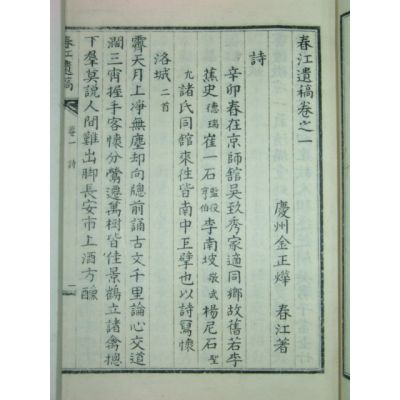 春江遺稿卷之一
慶州金正燁 春江著
詩
辛卯春在京師館吳致秀家適同鄉故舊若李
蕉史德瑞崔一石監役亨伯李南坡敬武楊尼石聖
九諸氏同館來往皆南中巨擘也以詩寫懷
洛城二首
霽天月上淨無塵却向牕前誦古文千里論心交道
濶三宵握手客懷分鶯遷萬樹皆佳景鶴立諸禽摠
下羣莫說人間難出脚長安市上酒方醺
春江遺稿
卷一 詩